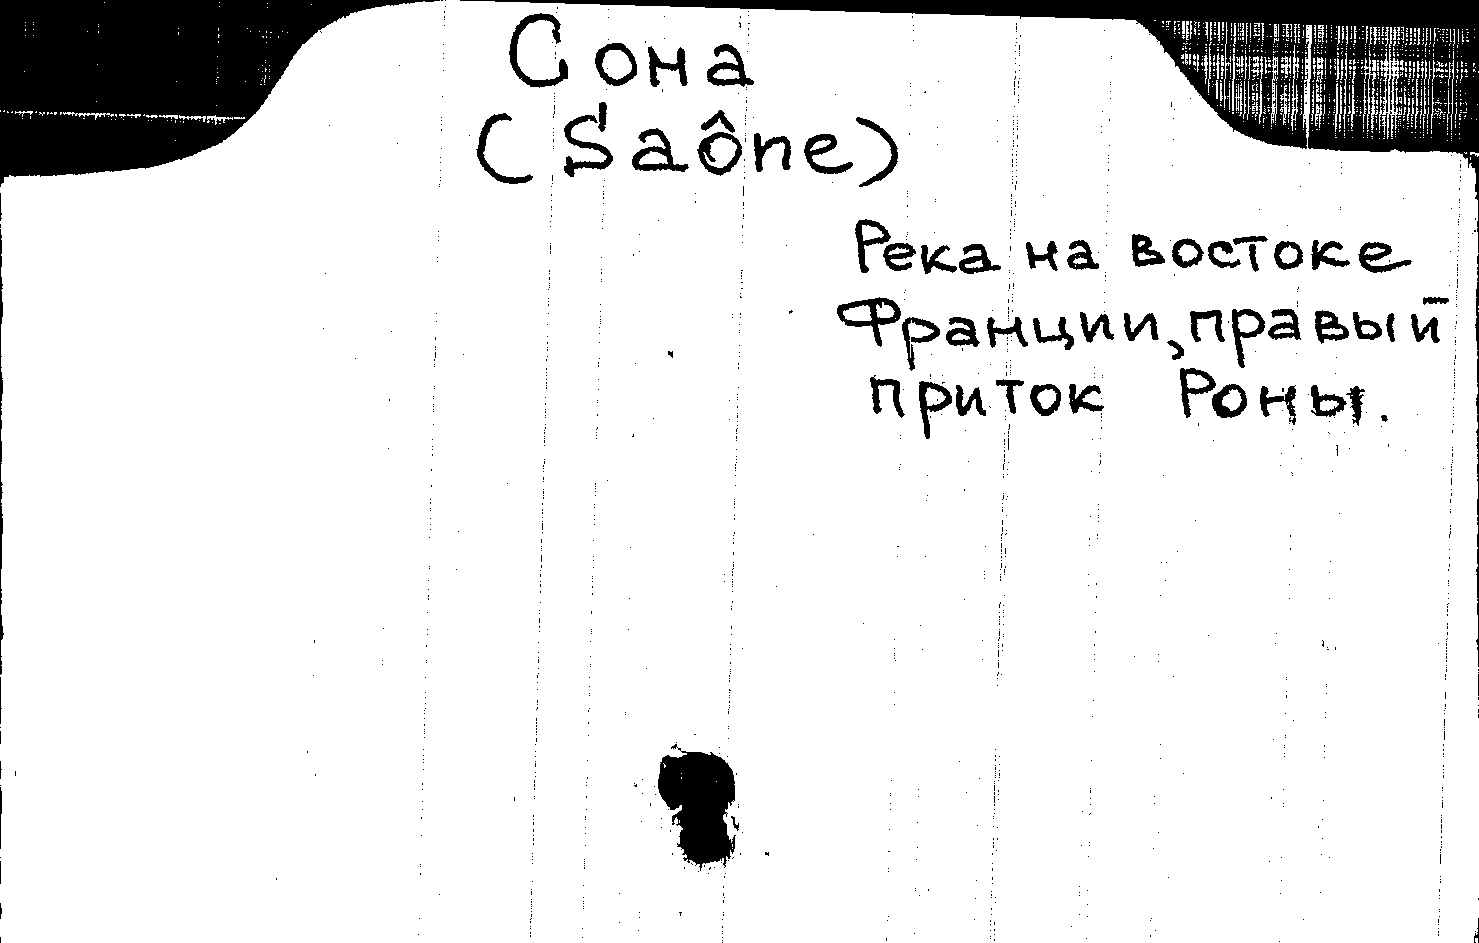 Сона
(Saône)
Река на востоке
Франции, правый
приток Роны.